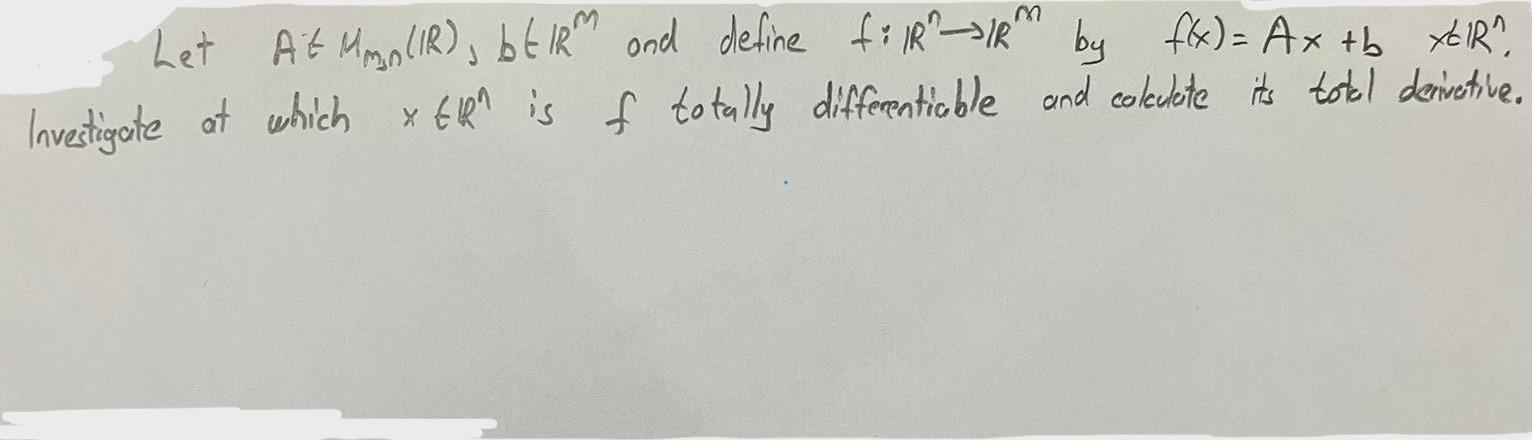 Let A ∈ M_{m,n}(ℝ), b ∈ ℝ^m and define f : ℝ^n → ℝ^m by f(x) = Ax + b x ∈ ℝ^n.
Investigate at which x ∈ ℝ^n is f totally differentiable and calculate its total derivative.